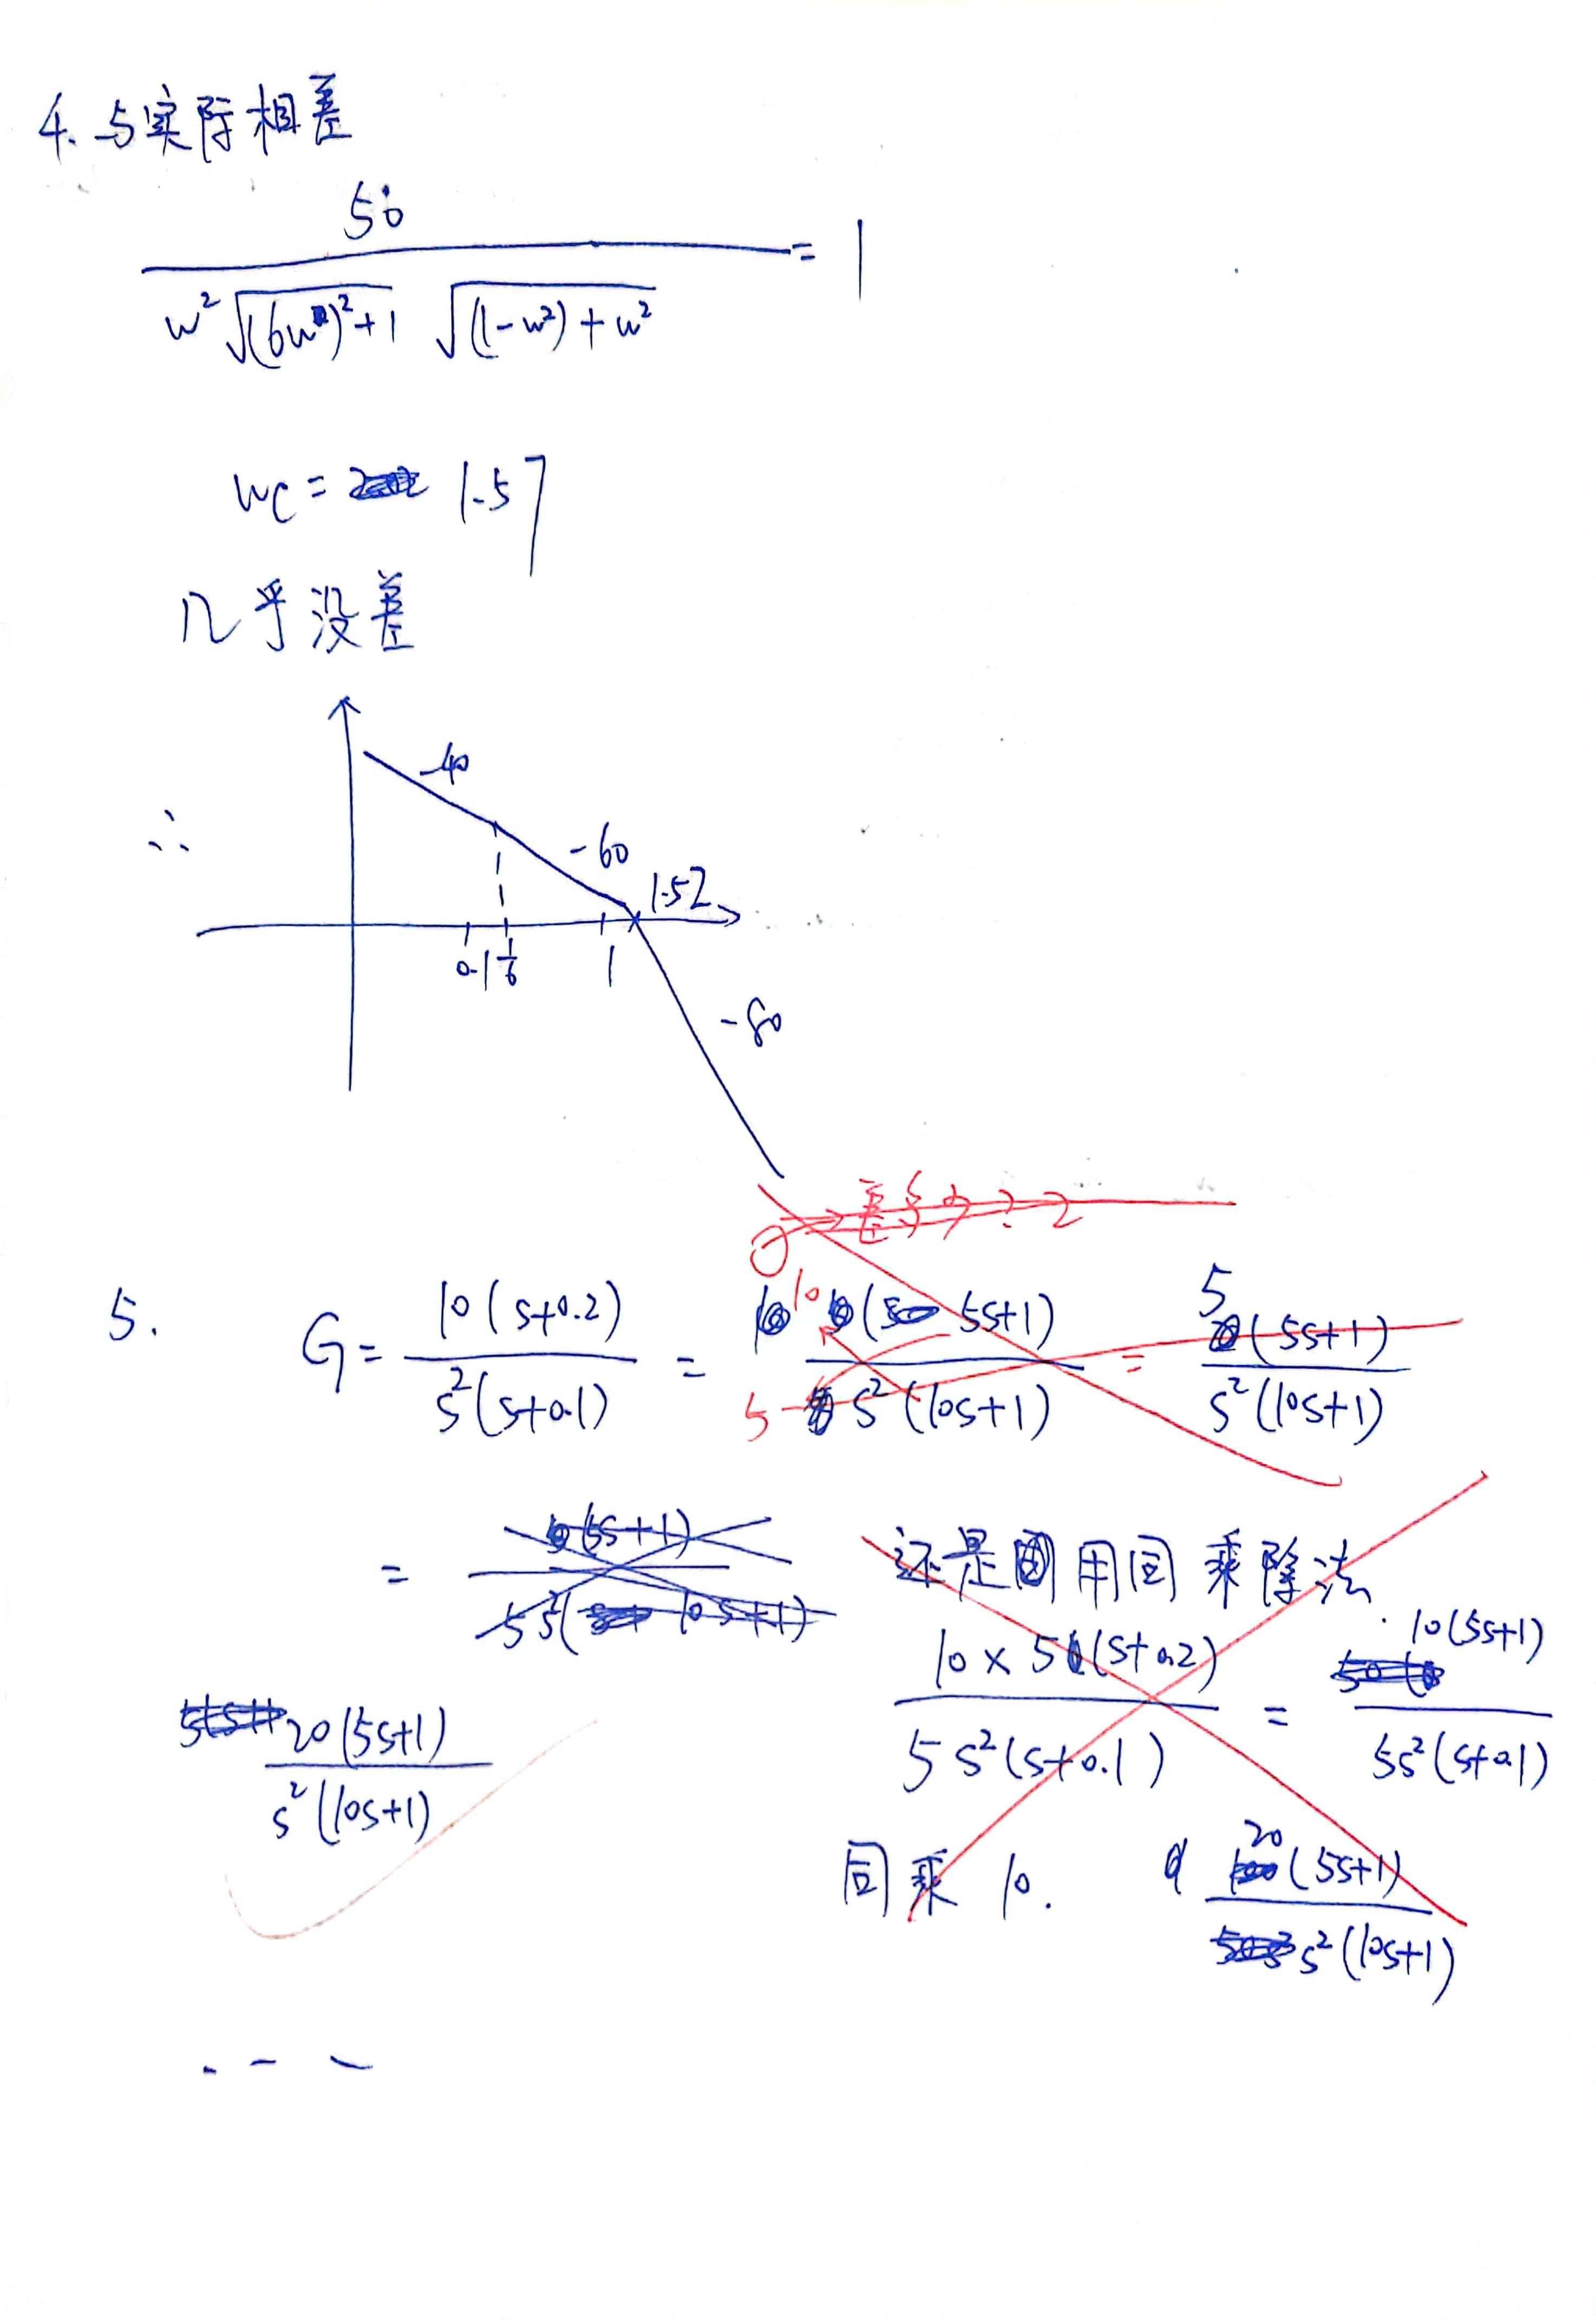 4. 与实际相差
50
w² √(6w)²+1 √(1-w²)+w² = 1
wc = 1.57
几乎没差
-40
∴ -60
1.52
0.1 1/6 1
-80
5. G = 10(s+0.2) / s²(s+0.1) = 10(5s+1) / 5 s²(10s+1) = 5(5s+1) / s²(10s+1)
= (5s+1) / 5s²(10s+1)
还是用同乘除法.
10×5(s+0.2) / 5s²(s+0.1) = 10(5s+1) / 5s²(s+0.1)
20(5s+1) / s²(10s+1)
同乘 10. 20(5s+1) / s²(10s+1)